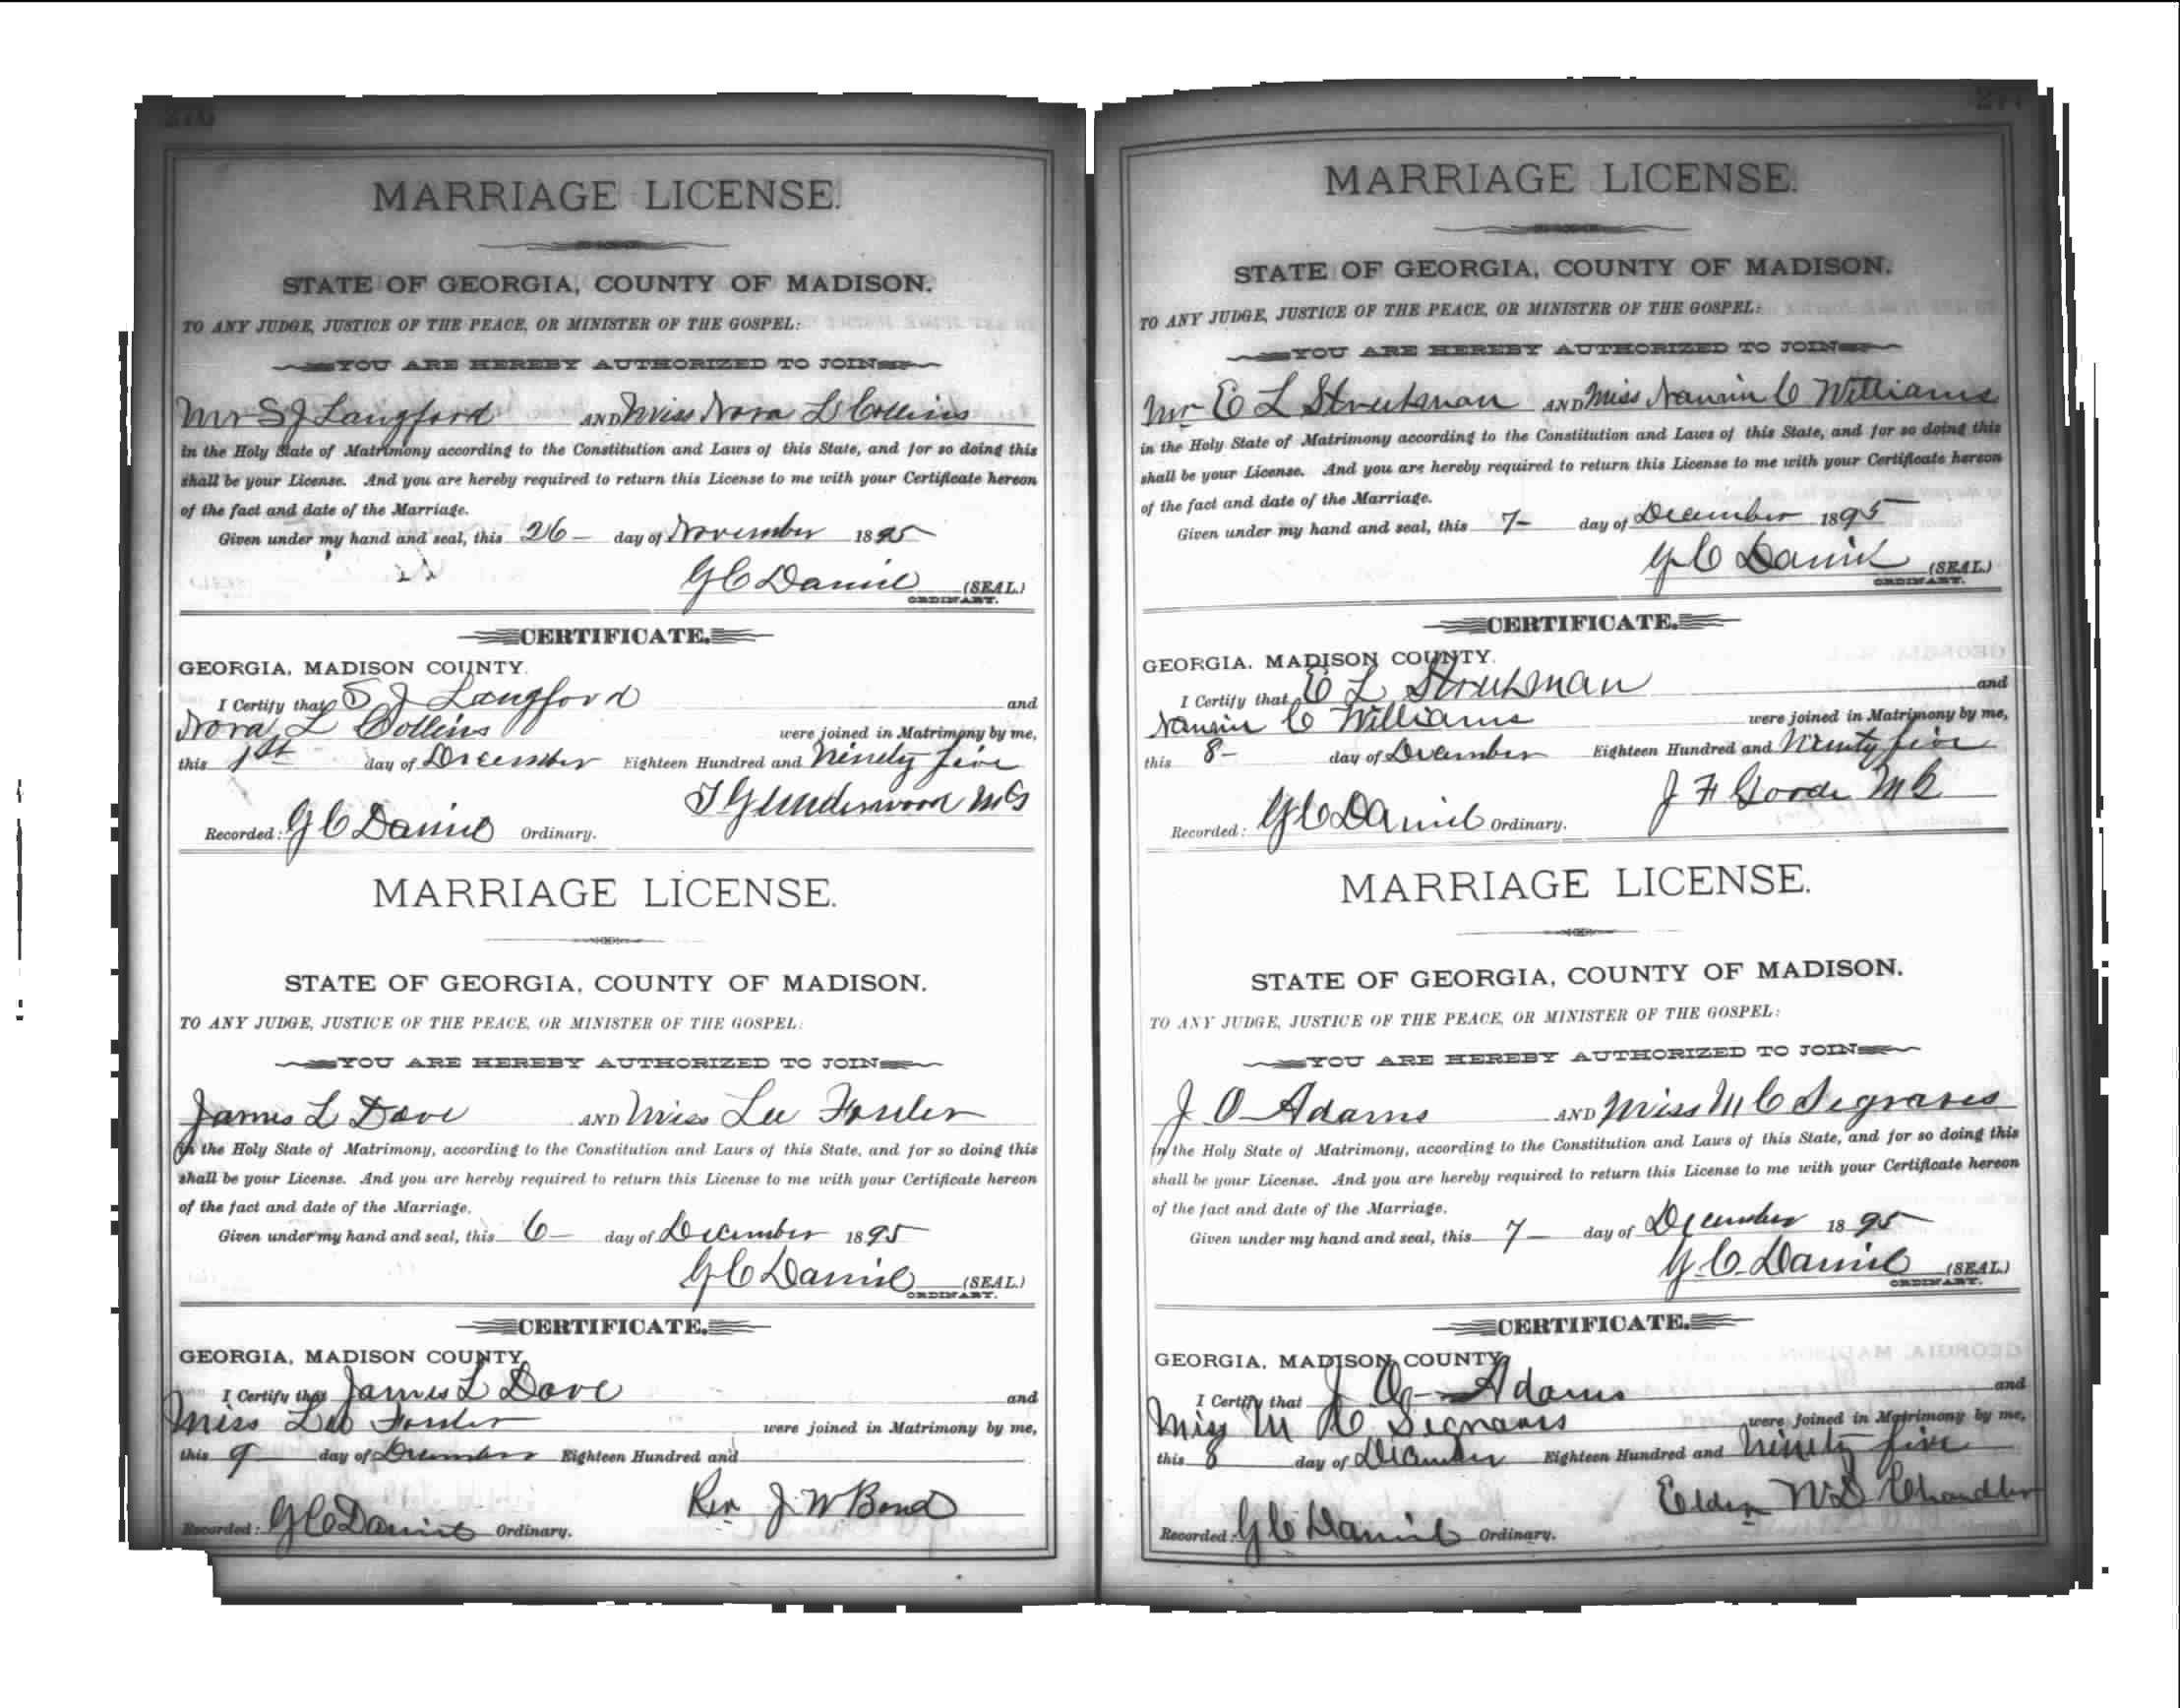 276
MARRIAGE LICENSE.
STATE OF GEORGIA, COUNTY OF MADISON.
TO ANY JUDGE, JUSTICE OF THE PEACE, OR MINISTER OF THE GOSPEL:
YOU ARE HEREBY AUTHORIZED TO JOIN
Mr S J Langford AND Miss Nora L Collins
in the Holy State of Matrimony according to the Constitution and Laws of this State, and for so doing this
shall be your License. And you are hereby required to return this License to me with your Certificate hereon
of the fact and date of the Marriage.
Given under my hand and seal, this 26 — day of November 1895
G C Daniel (SEAL.)
ORDINARY.
CERTIFICATE.
GEORGIA, MADISON COUNTY.
I Certify that S J Langford and
Nora L Collins were joined in Matrimony by me,
this 1st day of December Eighteen Hundred and Ninety five
T G Underwood MG
Recorded: G C Daniel Ordinary.
MARRIAGE LICENSE.
STATE OF GEORGIA, COUNTY OF MADISON.
TO ANY JUDGE, JUSTICE OF THE PEACE, OR MINISTER OF THE GOSPEL:
YOU ARE HEREBY AUTHORIZED TO JOIN
James L Dove AND Miss Lee
in the Holy State of Matrimony, according to the Constitution and Laws of this State, and for so doing this
shall be your License. And you are hereby required to return this License to me with your Certificate hereon
of the fact and date of the Marriage.
Given under my hand and seal, this 6 — day of December 1895
G C Daniel (SEAL.)
ORDINARY.
CERTIFICATE.
GEORGIA, MADISON COUNTY.
I Certify that James L Dove and
Miss Lee were joined in Matrimony by me,
this 9 day of December Eighteen Hundred and
Rev J W Bond
Recorded: G C Daniel Ordinary.
277
MARRIAGE LICENSE.
STATE OF GEORGIA, COUNTY OF MADISON.
TO ANY JUDGE, JUSTICE OF THE PEACE, OR MINISTER OF THE GOSPEL:
YOU ARE HEREBY AUTHORIZED TO JOIN
Mr E L AND Miss Nannie C Williams
in the Holy State of Matrimony according to the Constitution and Laws of this State, and for so doing this
shall be your License. And you are hereby required to return this License to me with your Certificate hereon
of the fact and date of the Marriage.
Given under my hand and seal, this 7 — day of December 1895
G C Daniel (SEAL.)
ORDINARY.
CERTIFICATE.
GEORGIA, MADISON COUNTY.
I Certify that E L and
Nannie C Williams were joined in Matrimony by me,
this 8 — day of December Eighteen Hundred and Ninety five
J F Goode M G
Recorded: G C Daniel Ordinary.
MARRIAGE LICENSE.
STATE OF GEORGIA, COUNTY OF MADISON.
TO ANY JUDGE, JUSTICE OF THE PEACE, OR MINISTER OF THE GOSPEL:
YOU ARE HEREBY AUTHORIZED TO JOIN
J O Adams AND Miss M C Segraves
in the Holy State of Matrimony, according to the Constitution and Laws of this State, and for so doing this
shall be your License. And you are hereby required to return this License to me with your Certificate hereon
of the fact and date of the Marriage.
Given under my hand and seal, this 7 — day of December 1895
G. C. Daniel (SEAL.)
ORDINARY.
CERTIFICATE.
GEORGIA, MADISON COUNTY.
I Certify that J O Adams and
Miss M C Segraves were joined in Matrimony by me,
this 8 day of December Eighteen Hundred and Ninety five
Elder W D Chandler
Recorded: G C Daniel Ordinary.